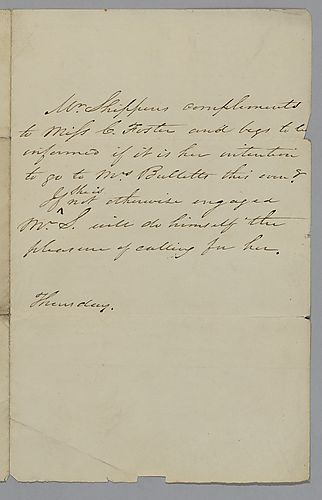 Mr. Sheppens compliments
to Miss C. Foster and begs to be
informed if it is her intention
to go to Mrs Bulletts this even.g
If she is not otherwise engaged
Mr S. will do himself the
pleasure of calling for her.
Thursday.